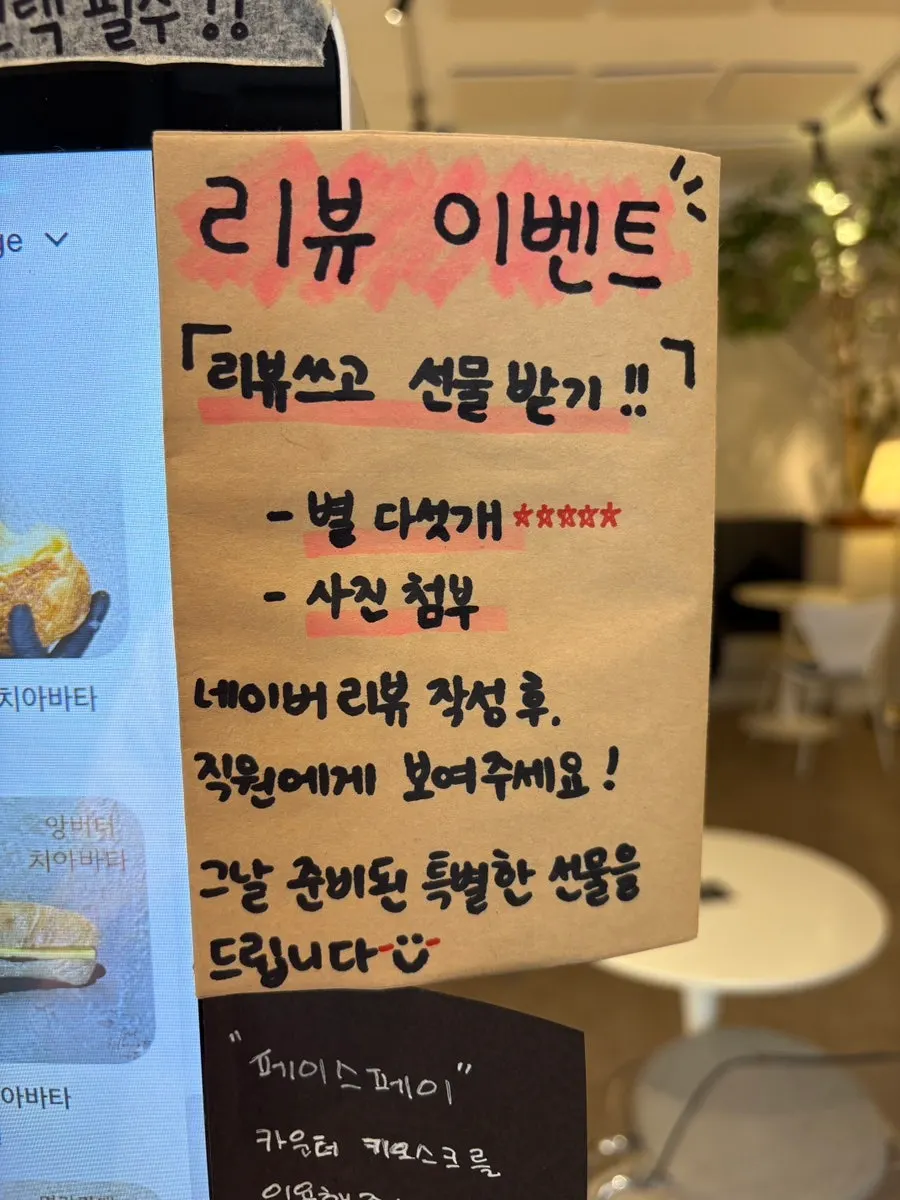 택 필수!!
리뷰 이벤트
「리뷰쓰고 선물 받기!!」
- 별 다섯개 ☆☆☆☆☆
- 사진 첨부
네이버 리뷰 작성 후.
직원에게 보여주세요!
그날 준비된 특별한 선물을
드립니다
"페이스페이"
카운터 키오스크를
ge
치아바타
앙버터
치아바타
아바타